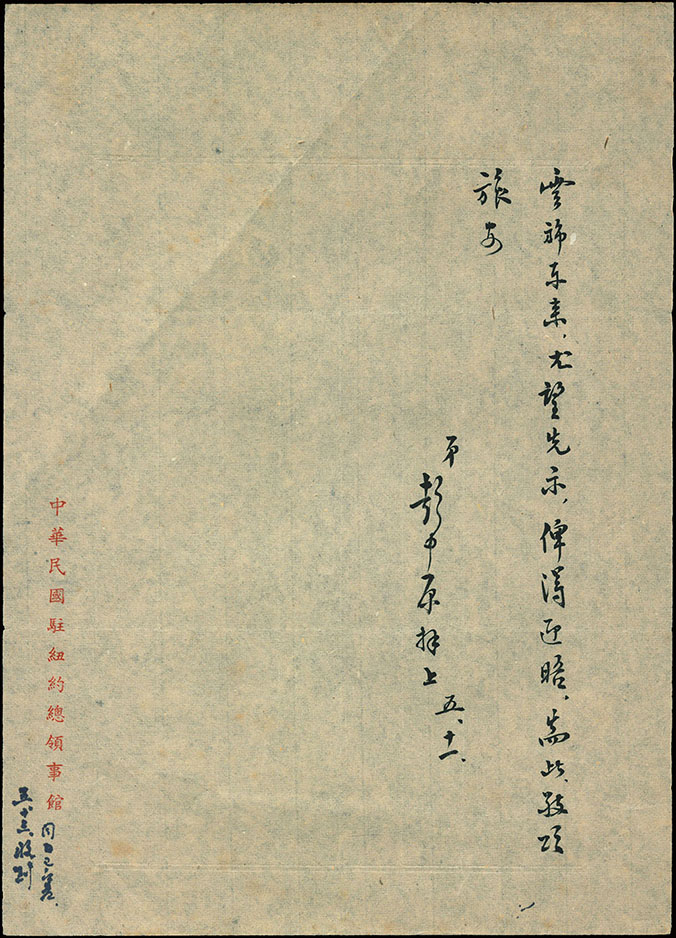 雲旆東來，尤望先示，俾得迎晤，耑此，敬頌
旅安
弟彭中原拜上 五、十一、
中華民國駐紐約總領事館
同日已
五、十三收到